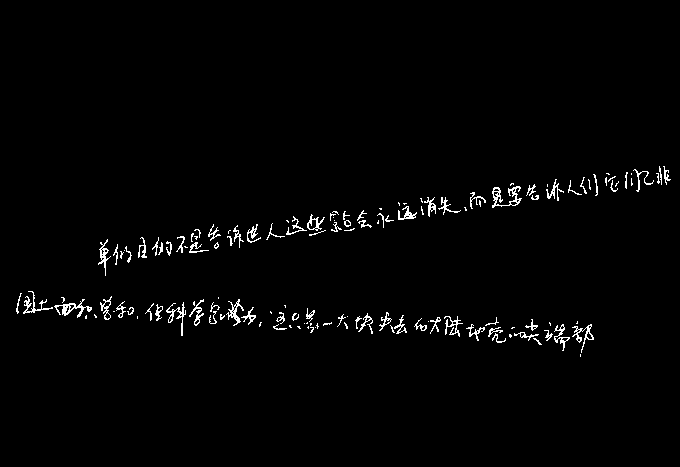 单的目的不是告诉世人这些景点会永远消失,而是要告诉人们它们已非
国土面积总和,但科学家认为,这只是一大块失去的大陆地壳的尖端部